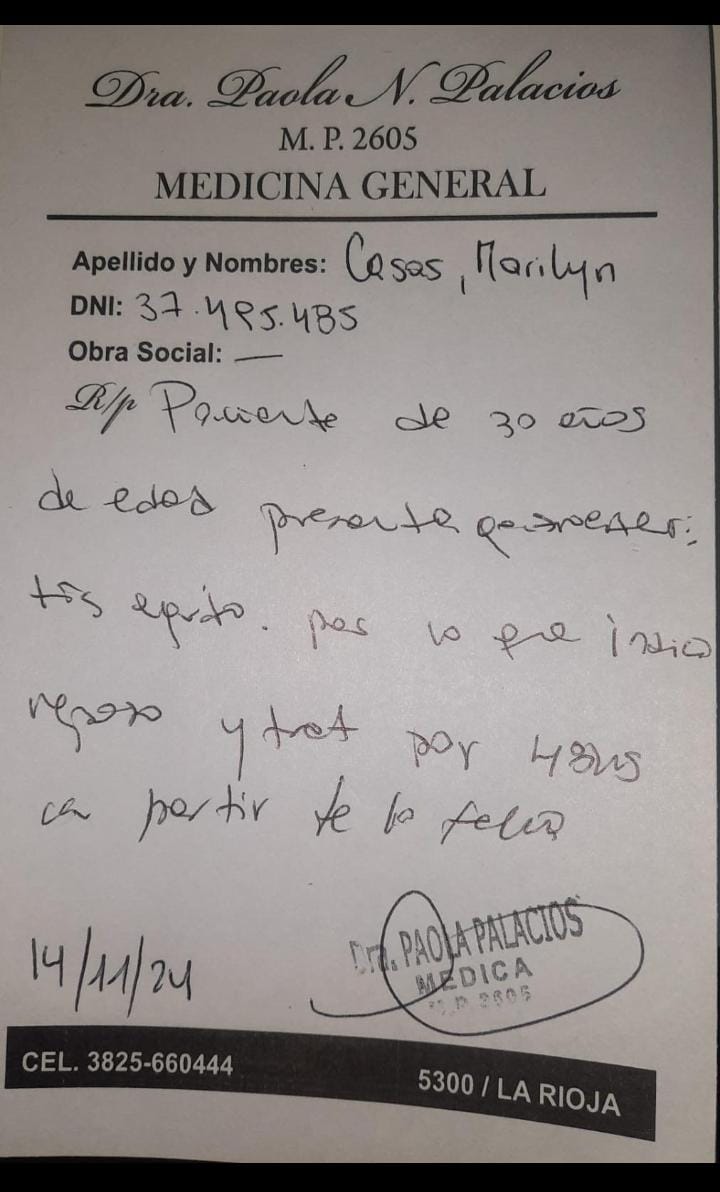 Dra. Paola N. Palacios
M. P. 2605
MEDICINA GENERAL
Apellido y Nombres: Casas, Marilyn
DNI: 37.495.485
Obra Social: —
R/p Paciente de 30 años
de edad presenta gastroenteri:
tis aguda. por lo que indico
reposo y trat por 48hs
a partir de la fecha
14/11/24
Dra. PAOLA PALACIOS
MEDICA
M.P 2605
CEL. 3825-660444
5300 / LA RIOJA